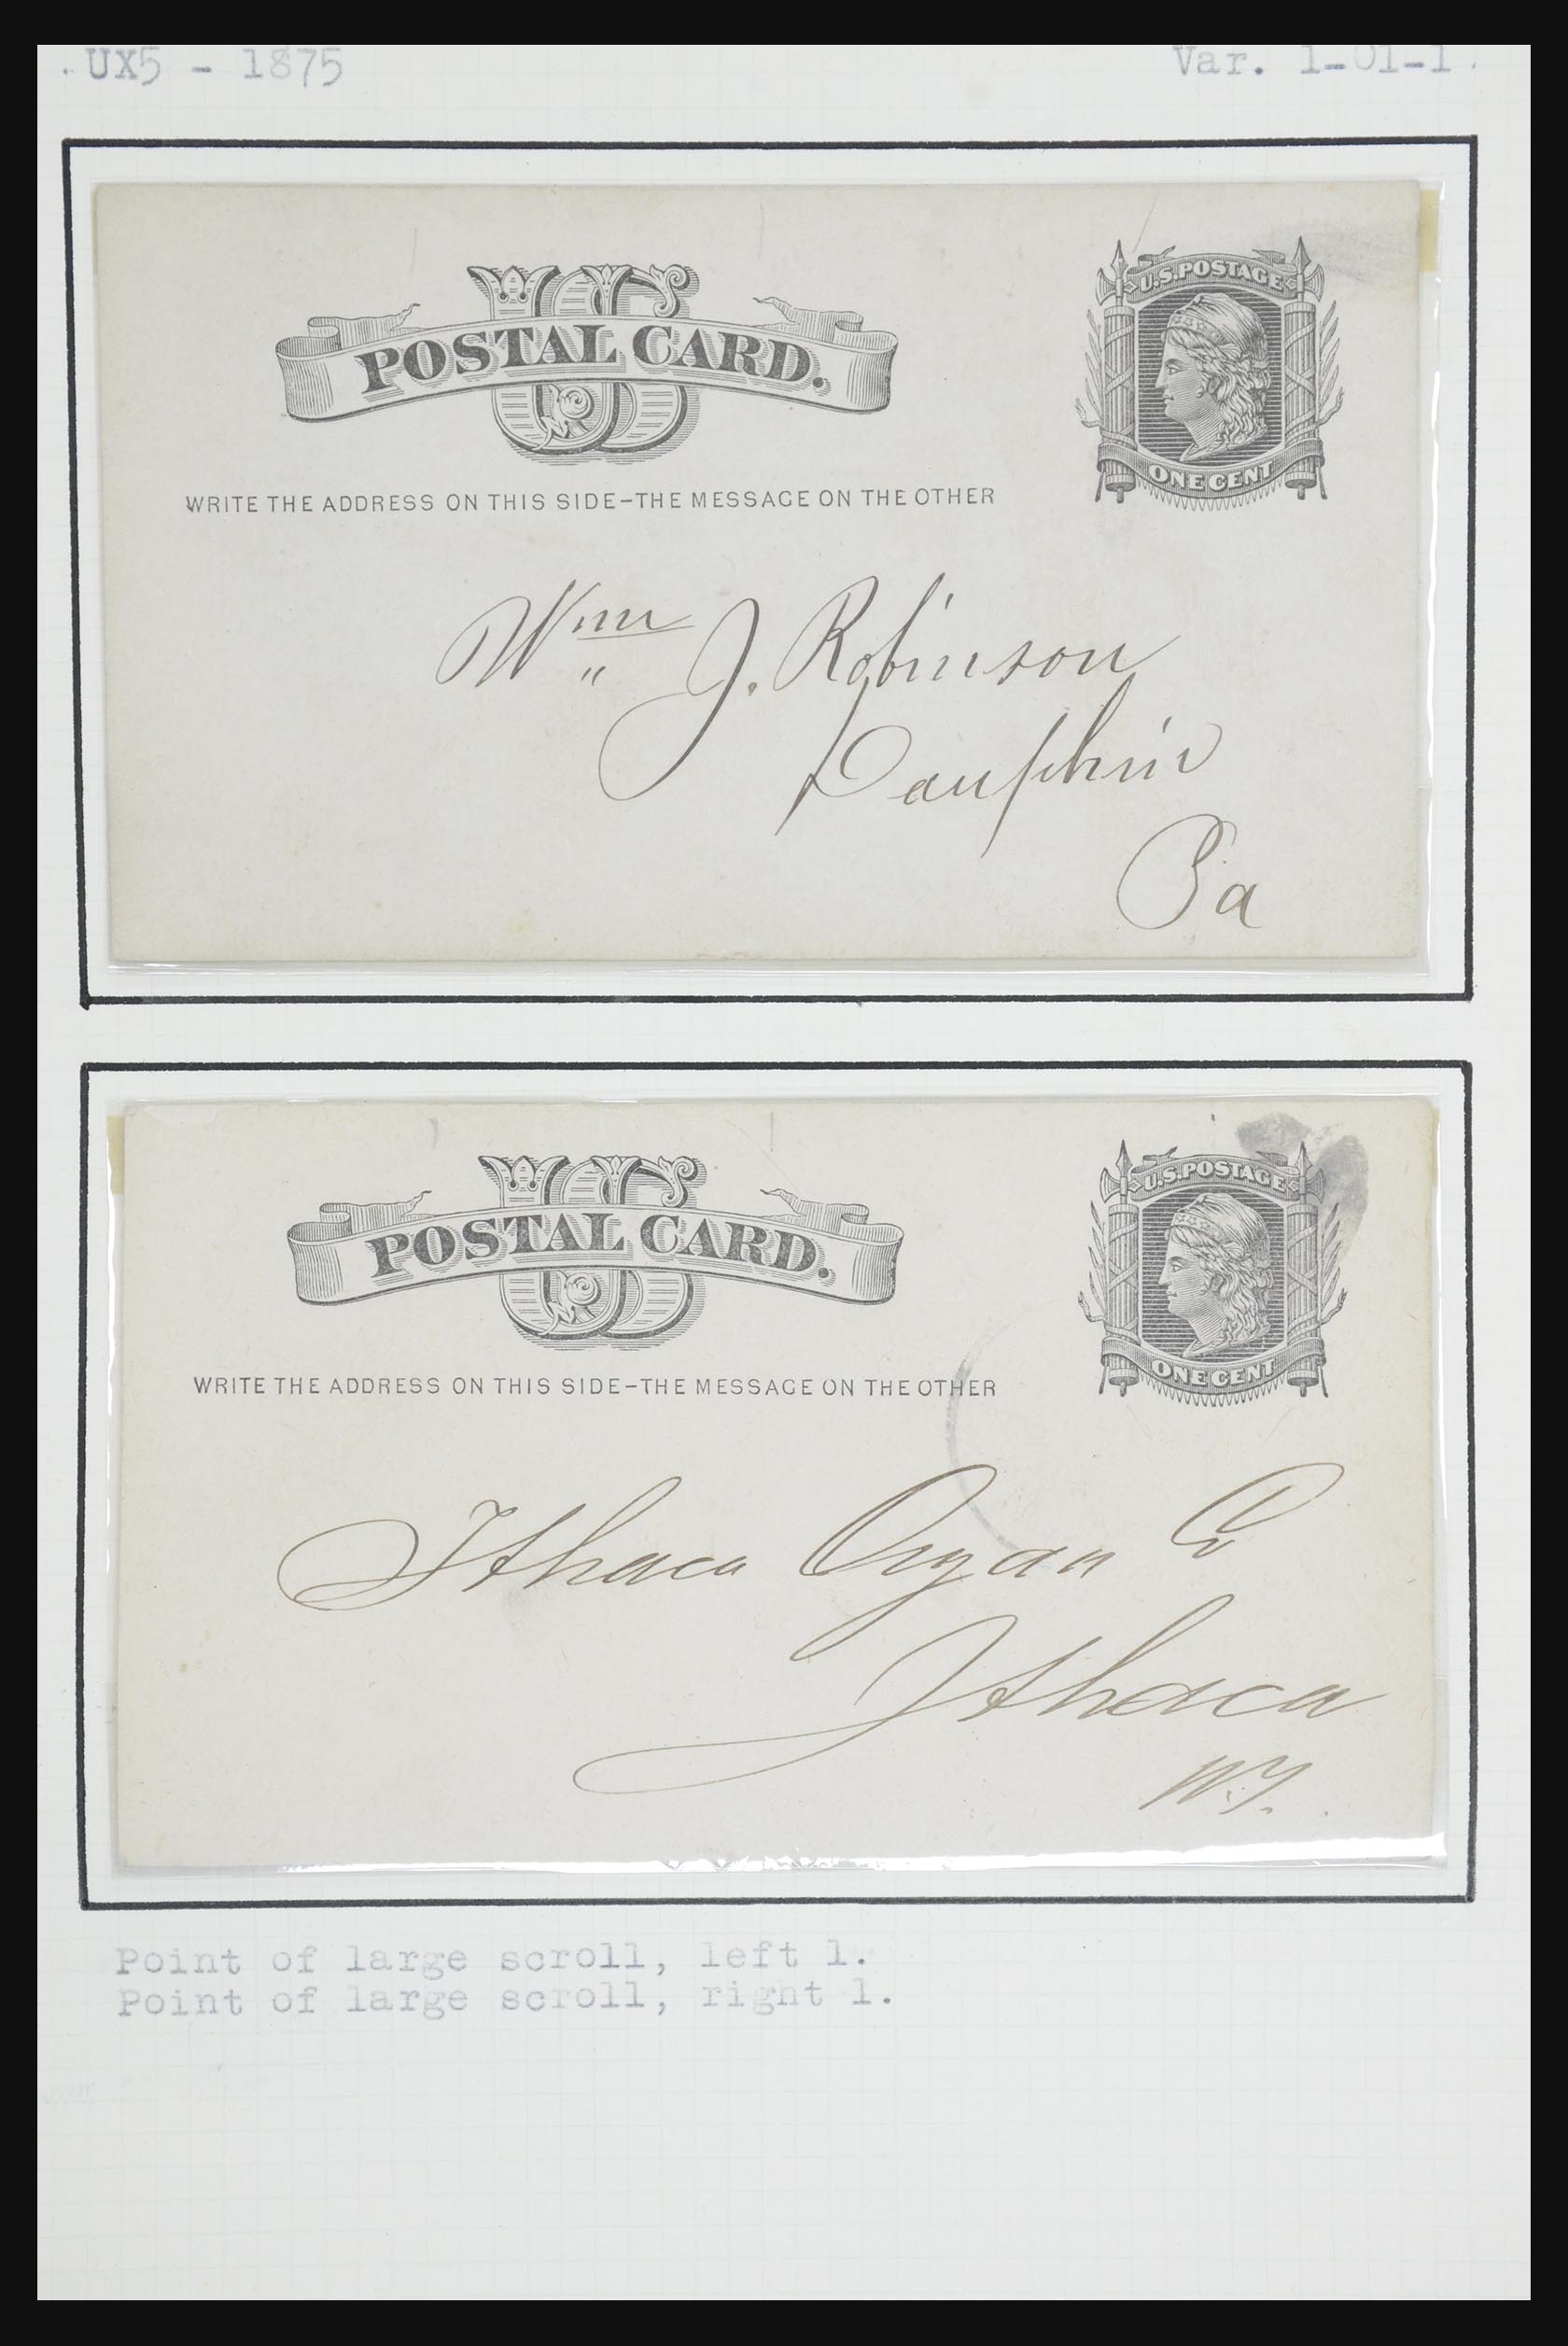 UX5 - 1875
Var. 1-01-1
US
POSTAL CARD.
U.S.POSTAGE
ONE CENT
WRITE THE ADDRESS ON THIS SIDE-THE MESSAGE ON THE OTHER
Wm J. Robinson
Dauphin
Pa
US
POSTAL CARD.
U.S.POSTAGE
ONE CENT
WRITE THE ADDRESS ON THIS SIDE-THE MESSAGE ON THE OTHER
Ithaca Organ Co
Ithaca
N.Y.
Point of large scroll, left 1.
Point of large scroll, right 1.